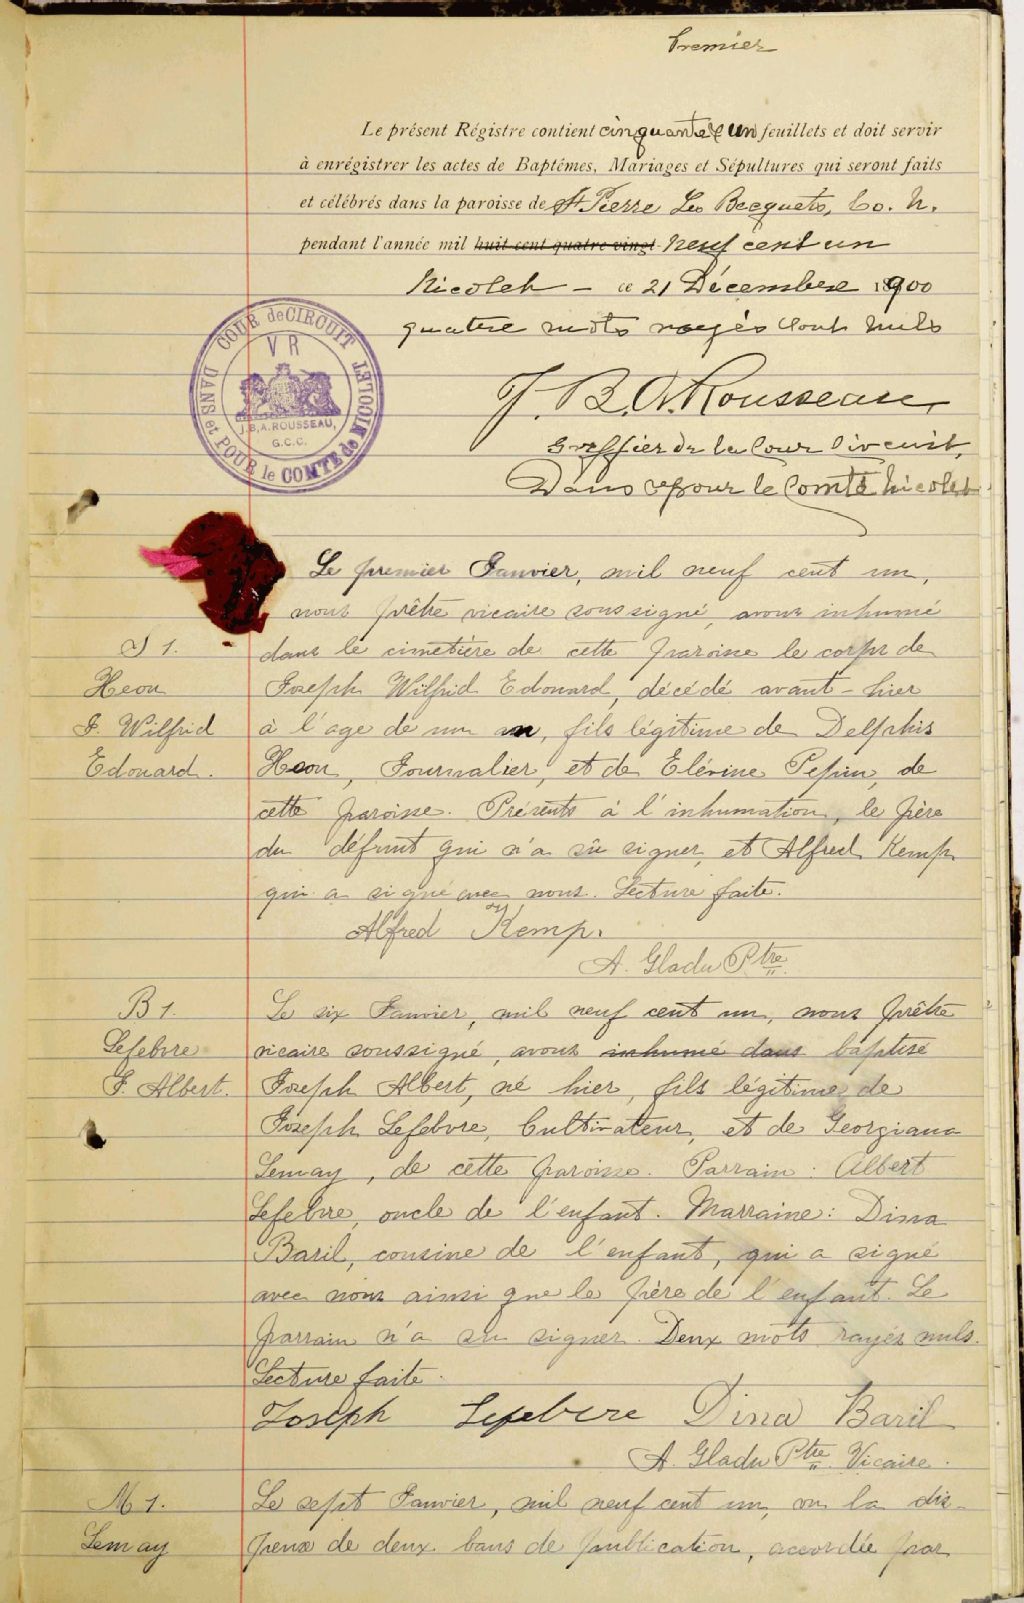 Premier
Le présent Régistre contient cinquante & un feuillets et doit servir
à enrégistrer les actes de Baptêmes, Mariages et Sépultures qui seront faits
et célébrés dans la paroisse de St Pierre Les Becquets, Co. N.
pendant l'année mil huit cent quatre vingt neuf cent un
Nicolet - ce 21 Décembre 1900
quatre mots rayés sont nuls
COUR de CIRCUIT
DANS et POUR le COMTÉ de NICOLET
V R
J.B.A. ROUSSEAU,
G.C.C.
J. B. A. Rousseau
Greffier de la Cour Circuit,
Dans & pour le Comté Nicolet
Le premier Janvier, mil neuf cent un,
nous prêtre vicaire soussigné, avons inhumé
S 1.
dans le cimetière de cette paroisse le corps de
Heon
Joseph Wilfrid Edouard, décédé avant-hier
J. Wilfrid
à l'age de un an, fils légitime de Delphis
Edouard.
Heon, Journalier, et de Elévine Pepin, de
cette paroisse. Présents à l'inhumation, le père
du défunt qui n'a sû signer, et Alfred Kemp
qui a signé avec nous. Lecture faite.
Alfred Kemp.
A. Gladu Ptre
B 1.
Le six Janvier, mil neuf cent un, nous prêtre
Lefebvre
vicaire soussigné, avons inhumé dans baptisé
J. Albert.
Joseph Albert, né hier, fils légitime de
Joseph Lefebvre, Cultivateur, et de Georgiana
Lemay, de cette paroisse. Parrain: Albert
Lefebvre, oncle de l'enfant. Marraine: Dina
Baril, cousine de l'enfant, qui a signé
avec nous ainsi que le père de l'enfant. Le
parrain n'a su signer. Deux mots rayés nuls.
Lecture faite.
Joseph Lefebvre Dina Baril
A. Gladu Ptre Vicaire.
M 1.
Le sept Janvier, mil neuf cent un, vu la dis-
Lemay
pense de deux bans de publication, accordée par